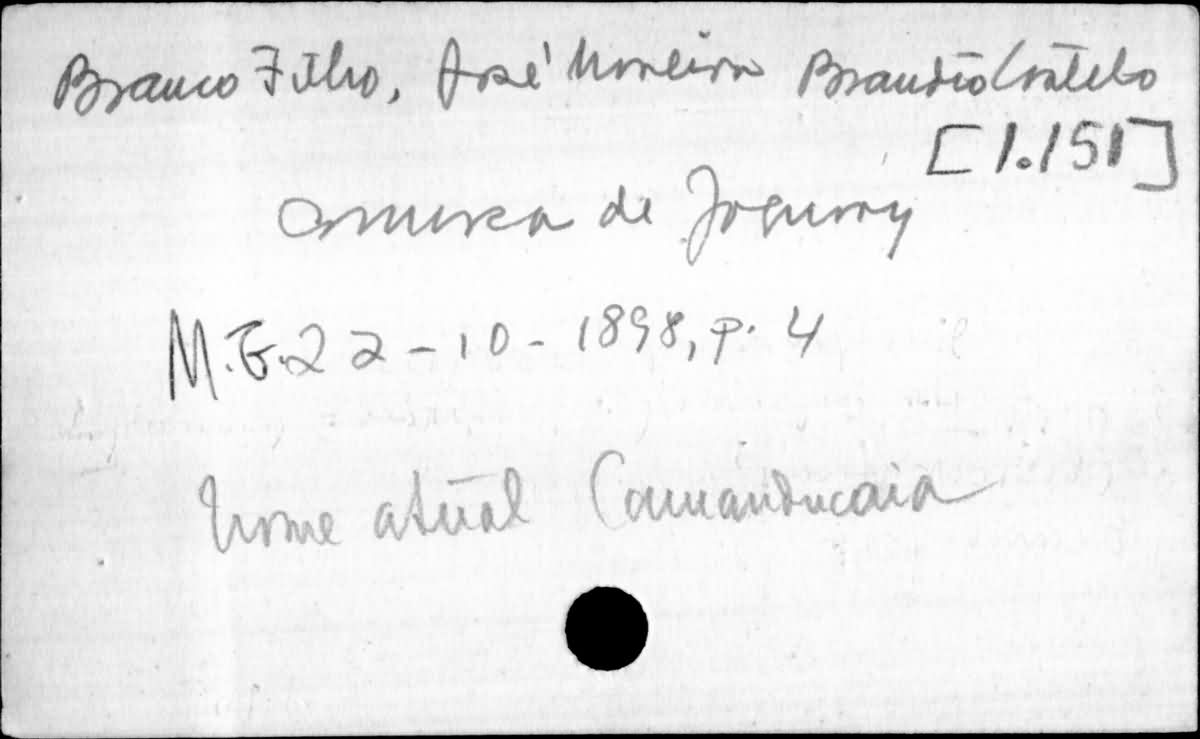 Branco Filho, José Moreira Brandão Castelo
[1.151]
comarca de Jaguary
M.G. 22-10-1898, p. 4
Nome atual Camanducaia